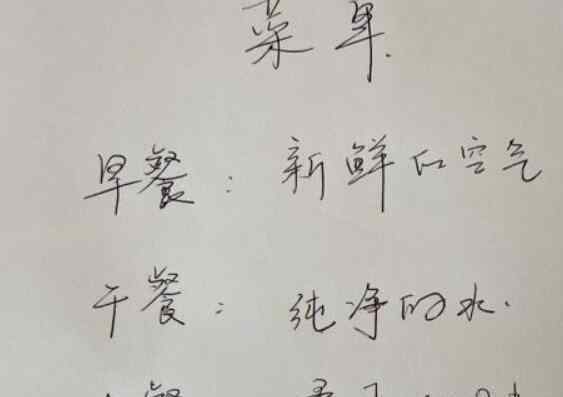 菜单
早餐：新鲜的空气
干餐：纯净的水.